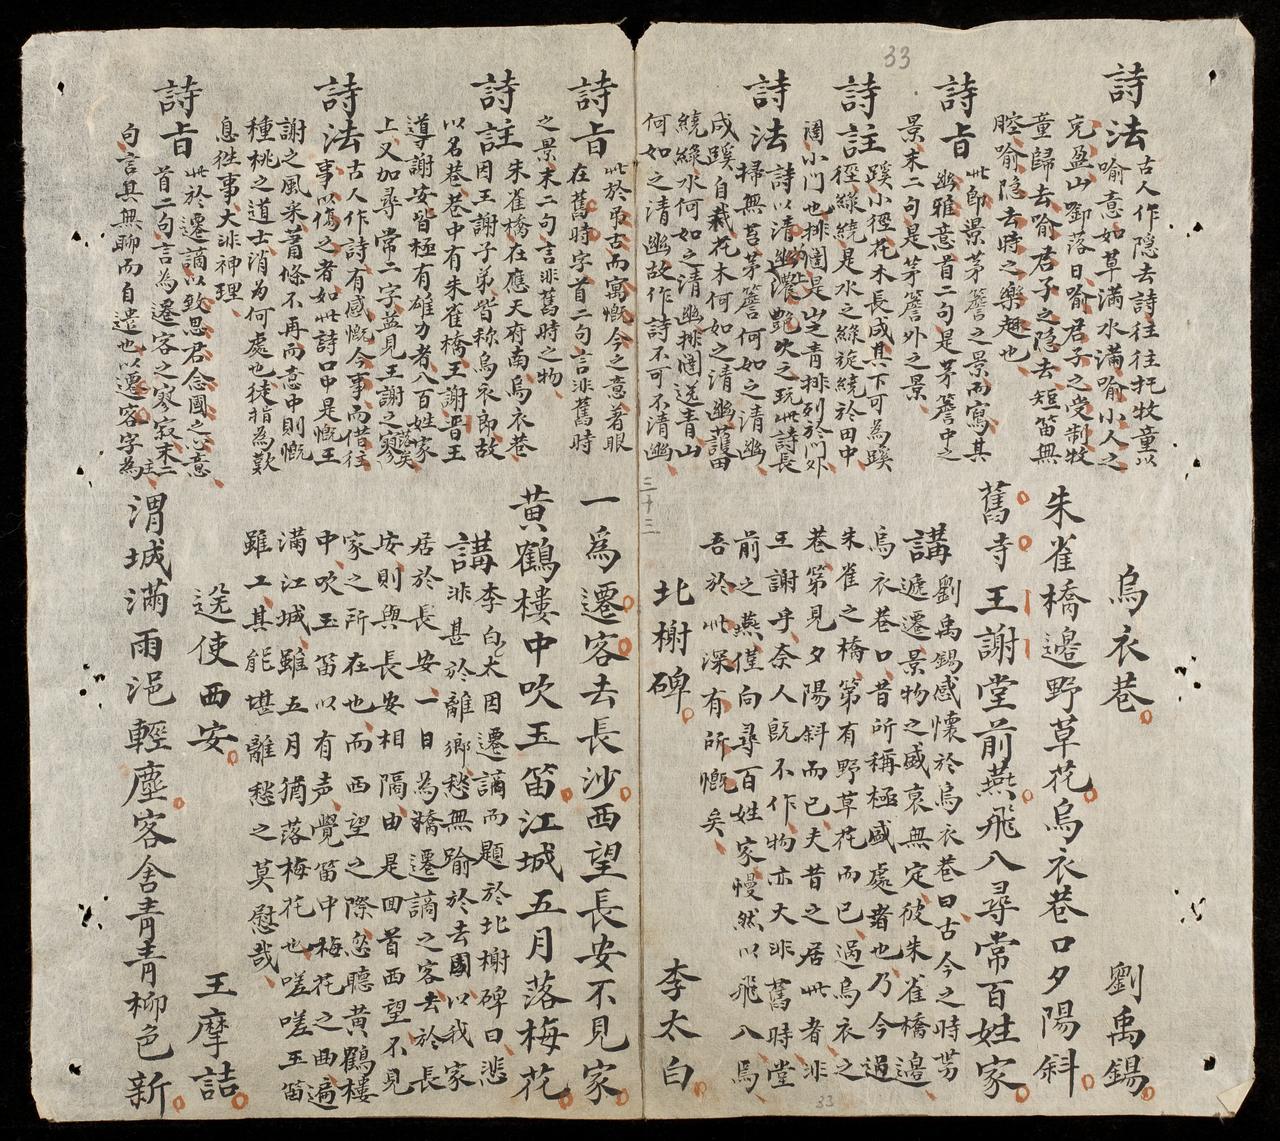 33
詩法古人作隐去詩往往托牧童以
喻意如草滿水滿喻小人之
充盈山啣落日喻君子之受制牧
童歸去喻君子之隐去短笛無
腔喻隐去時之樂趣也
詩旨此即景茅簷之景而寫其
幽雅意首二句是茅簷中之
景末二句是茅簷外之景
詩註蹊小徑花木長成其下可為蹊
徑綠繞是水之綠旋繞於田中
闥小門也排闥是山之青排列於門外
詩法詩以清幽濃艷吹之玩此詩長
掃無苔茅簷何如之清幽
成蹊自栽花木何如之清幽護田
繞綠水何如之清幽排闥送青山
何如之清幽故作詩不可不清幽
烏衣巷 劉禹錫
朱雀橋邊野草花烏衣巷口夕陽斜
舊寺王謝堂前燕飛入尋常百姓家
講劉禹錫感懷於烏衣巷曰古今之時勢
遞遷景物之盛衰無定彼朱雀橋邊
烏衣巷口昔所稱極盛處者也乃今過
朱雀之橋第有野草花而已過烏衣之
巷第見夕陽斜而已夫昔之居此者非
王謝乎奈人既不作物亦大非舊時堂
前之燕僅向尋百姓家慢然以飛入焉
吾於此深有所慨矣
北榭碑 李太白
三十三
33
詩旨此於吊古而寓慨今之意着眼
在舊時字首二句言非舊時
之景末二句言非舊時之物
詩註朱雀橋在應天府南烏衣巷
因王謝子弟皆称烏衣郎故
以名巷巷中有朱雀橋王謝晋王
導謝安皆極有雄力者八百姓家
上又加尋常二字益見王謝之寥落矣
詩法古人作詩有感慨今事而借往
事以傷之者如此詩口中是慨王
謝之風采蕭條不再而意中則慨
種桃之道士消为何處也徒指為歎
息徃事大非神理
詩旨此於遷謫以致思君念國之心意
首二句言為遷客之寥寂末二
句言其無聊而自遣也以遷客字為主
一爲遷客去長沙西望長安不見家
黄鶴樓中吹玉笛江城五月落梅花
講李白太因遷謫而題於北榭碑曰悲
非甚於離鄉愁無踰於去國以我家
居於長安一日為轎遷謫之客去於長
安則與長安相隔由是囬首西望不見
家之所在也而西望之際忽聽黄鶴樓
中吹玉笛以有声覺笛中梅花之曲遍
滿江城雖五月猶落梅花也嗟嗟玉笛
雖工其能堪離愁之莫慰哉
送使西安 王摩詰
渭城滿雨浥輕塵客舍青青柳色新